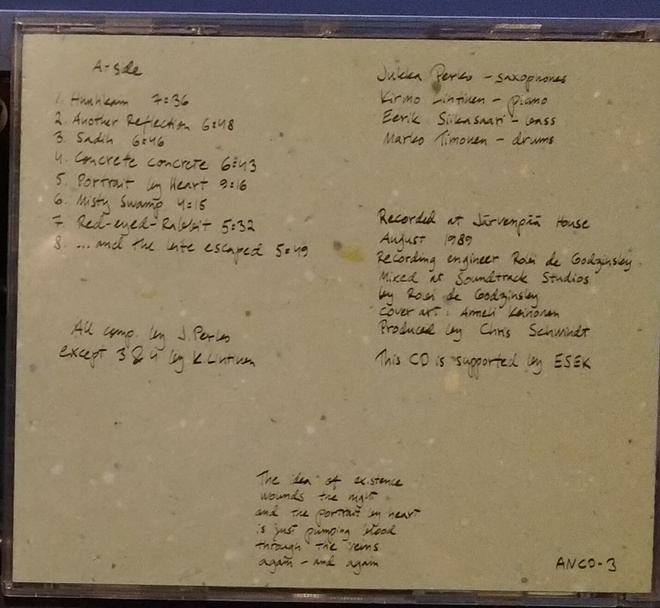 A-side
1. Huuhkam 7:36
2. Another Reflection 6:48
3. Sadin 6:46
4. Concrete concrete 6:43
5. Portrait by Heart 9:16
6. Misty Swamp 4:15
7. Red-eyed-Rabbit 5:32
8. ...and the kite escaped 5:49
All comp. by J. Perko
except 3 & 4 by K. Lintinen
Jukka Perko - saxophones
Kirmo Lintinen - piano
Eerik Siikasaari - bass
Marko Timonen - drums
Recorded at Järvenpää House
August 1989
Recording engineer Rolei de Godzinsky
Mixed at Soundtrack Studios
by Rolei de Godzinsky
Cover art: Anneli Keinonen
Produced by Chris Schwindt
This CD is supported by ESEK
The idea of existence
wounds the night
and the portrait by heart
is just pumping blood
through the veins
again - and again
ANCD-3